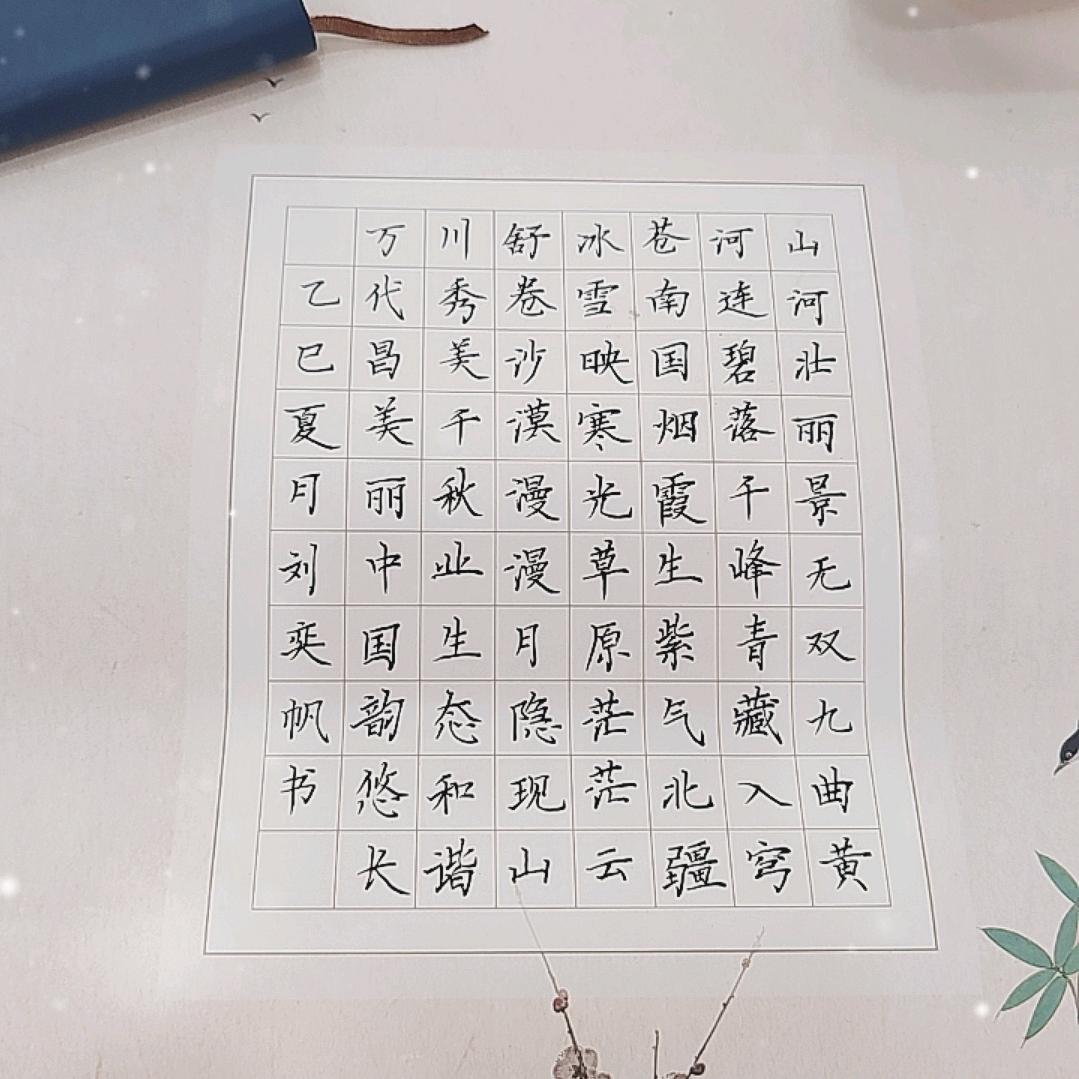 山河壮丽景无双九曲黄
河连碧落千峰青藏入穹
苍南国烟霞生紫气北疆
冰雪映寒光草原茫茫云
舒卷沙漠漫漫月隐现山
川秀美千秋业生态和谐
万代昌美丽中国韵悠长
乙巳夏月刘奕帆书